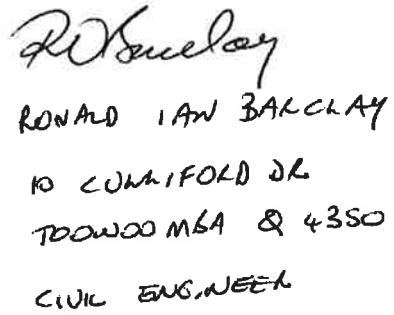 RIBarclay
RONALD IAN BARCLAY
10 CULLIFORD DR.
TOOWOOMBA Q 4350
CIVIL ENGINEER